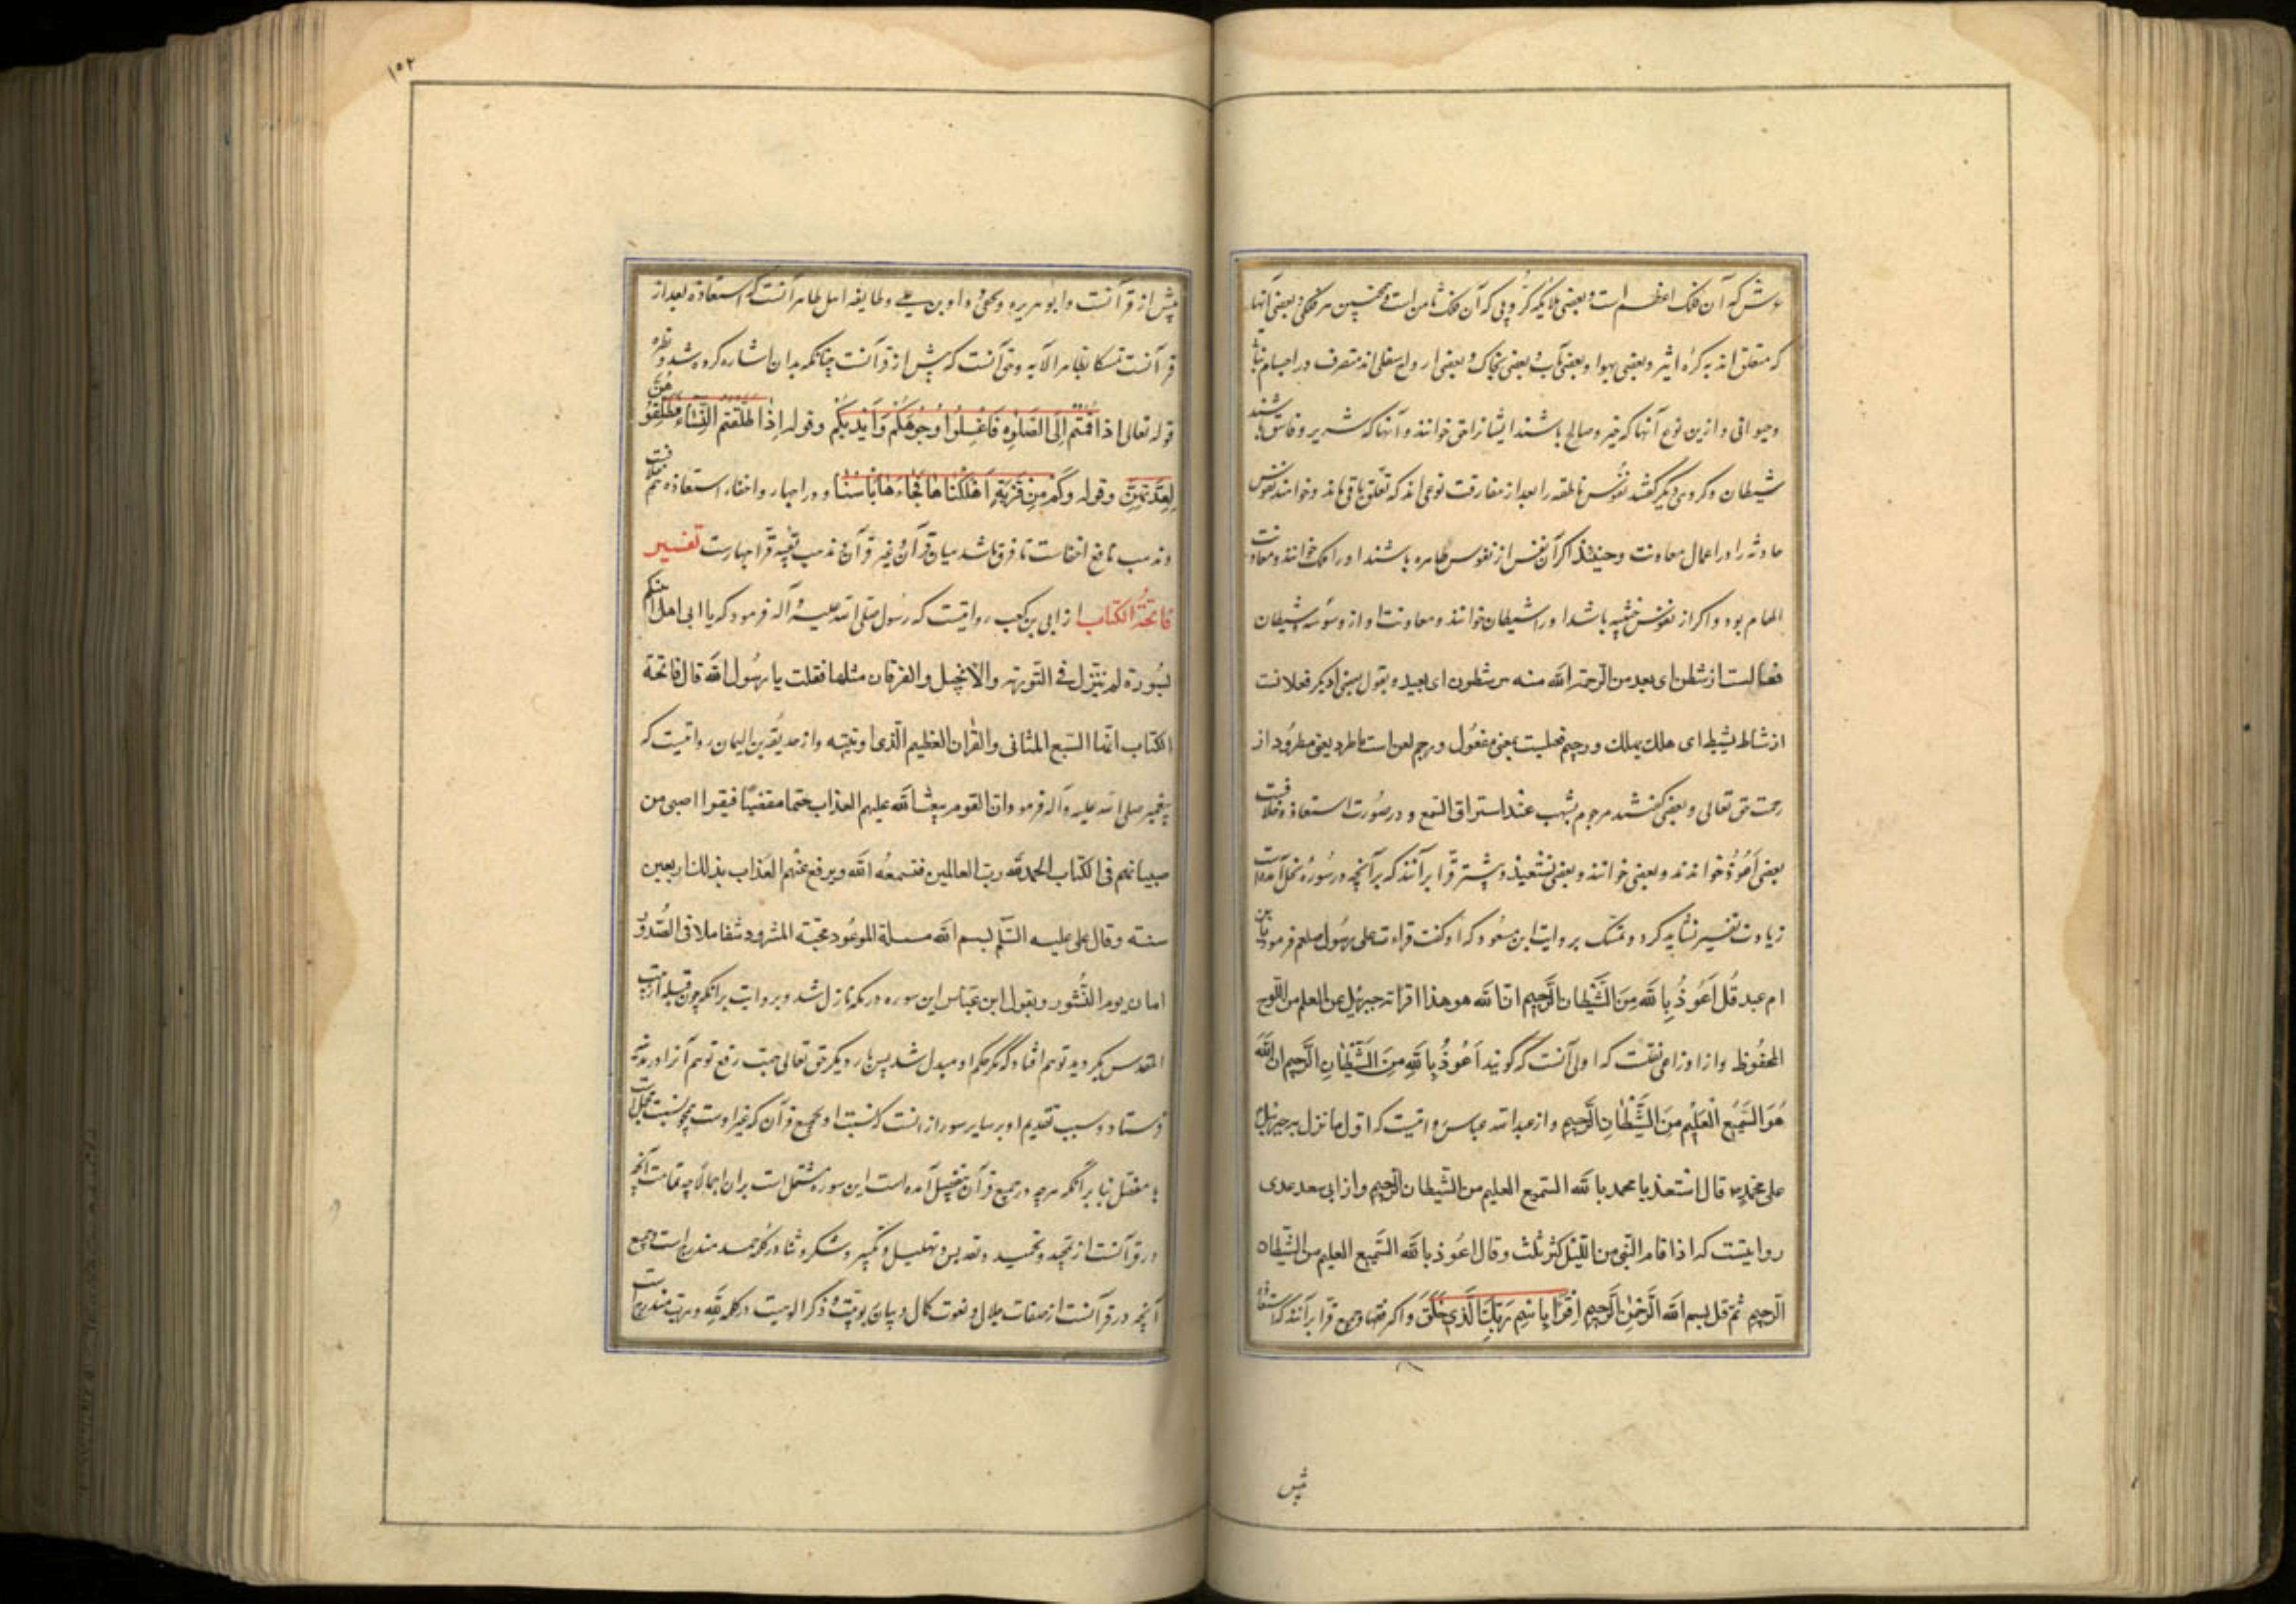 عرش که آن فلک اعظم است و بعضی ملائیکه کروبی که آن فلک ثامن است و همچنین هر فلکی و بعضی آنها
که متعلق اند به کره اثیر و بعضی بهوا و بعضی بآب و بعضی بخاک و بعضی ارواح سفلی اند متصرف در اجسام نباتی
و حیوانی و ازین نوع آنها که خیر و صالح باشند ایشانرا جن خوانند و آنها که شریر و فاسق باشند
شیطان و کروهی دیگر گفتند نفوس ناطقه را بعد از مفارقت نوعی اند که تعلق باقی ماند و خوانند نفوس
حادثه را در اعمال معاونت و حینئذ اکر آن نفس از نفوس طاهره باشند او را ملک خوانند و معاونت
الهام بود و اکر از نفوس خبیثه باشد او را شیطان خوانند و معاونت او از وسوسه شیطان
فعالست از شطن ای بعد من الرحمة الله منه بئر شطون ای بعیده و بقول بعضی دیکر فعلانست
از شاط یشیط ای هلک یهلک و رجیم فعیلست بمعنی مفعول و رجم لعن است یا طرد یعنی مطرود از
رحمت حق تعالی و بعضی گفتند مرجوم بشهب عند استراق السمع و در صورت استعاذه خلافست
بعضی اعوذ خواندند و بعضی خوانند و بعضی نستعیذ و بیشتر قرا برآنند که بر آنچه در سوره نحل آمده است
زیادت تفسیر نشاید کرد و تمسک بروایت ابن مسعود که او گفت قراءت علی رسول صلعم فرمود یا بن
ام عبد قل اعوذ بالله من الشیطان الرجیم انا لله هو هذا اقرانه جبرئیل عن العلم من اللوح
المحفوظ و از اوزاعی نقلست که اولی آنست که گویند اعوذ بالله من الشیطان الرجیم ان الله
هو السمیع العلیم من الشیطان الرجیم و از عبدالله عباس روایتست که اول ما نزل به جبرئیل
علی محمد ص قال استعذ یا محمد بالله السمیع العلیم من الشیطان الرجیم و از ابی سعد عدی
روایتست که اذا قام النبی من اللیل کثر ثلث و قال اعوذ بالله السمیع العلیم من الشیطان
الرجیم ثم قل بسم الله الرحمن الرحیم اقرا باسم ربک الذی خلق و اکثر فقها و جمیع قرا برآنند که استعاذه
پیش
۱۵۲
پیش از قرآنست و ابو هریره و نخعی و داود بن علی و طایفه اهل ظاهر آنست که استعاذه بعد از
قرآنست تمسکا بظاهر الآیه و حق آنست که پیش از قرآنست چنانکه بدان اشاره کرده شد و نظیره
قوله تعالی اذا قمتم الی الصلوة فاغسلوا وجوهکم و ایدیکم و قوله اذا طلقتم النساء فطلقوهن
لعدتهن و قوله و کم من قریة اهلکناها فجاءها باسنا و در اجهار و اخفار استعاذه هم خلافست
و مذهب نافع اخفاست تا فرق باشد میان قرآن و غیر قرآن و مذهب بقیه قرا جهارست تفسیر
فاتحة الکتاب از ابی بن کعب روایتست که رسول صلی الله علیه و آله فرمود که یا ابی اهلا اعنکم
بسورة لم ینزل فی التوریة والانجیل والفرقان مثلها فقلت یا رسول الله قال فاتحة
الکتاب انها السبع المثانی والقران العظیم الذی اوتیته و از حذیفة بن الیمان روایتست که
پیغمبر صلی الله علیه و آله فرمود وان القوم یبعث الله علیهم العذاب حتما مقضیا فیقرا اصبی من
صبیانهم فی الکتاب الحمد لله رب العالمین فتسمعه الله ویرفع عنهم العذاب بذلک اربعین
سنته و قال علی علیه السلم بسم الله مسلة الموعود محبته المشرود شفا ملا فی الصدور
امان یوم النشور و بقول ابن عباس این سوره در مکه نازل شد و بروایت برانکه چون قبله از بیت
المقدس بکردید توهم افتاد که مکر حکم او مبدل شد پس بار دیکر حق تعالی جهت رفع توهم آنرا در مدینه
فرستاد و سبب تقدیم او بر سایر سور از انست که نسبت او بجمیع قرآن که غیر اوست همچو نسبت مجملست
با مفصل بنا برانکه هرچه در جمیع قرآن بتفصیل آمده است این سوره مشتمل است بران اجمالا چه تمامت آنچه
در قرآنست از تمجید و تحمید و تقدیس و تهلیل و تکبیر و شکر و ثنا در کلمه حمد مندرج است و جمیع
آنچه در قرآنست از صفات جلال و نعوت کمال و بیان ربوبیت و ذکر الوهیت در کلمه لله و رب مندرج است